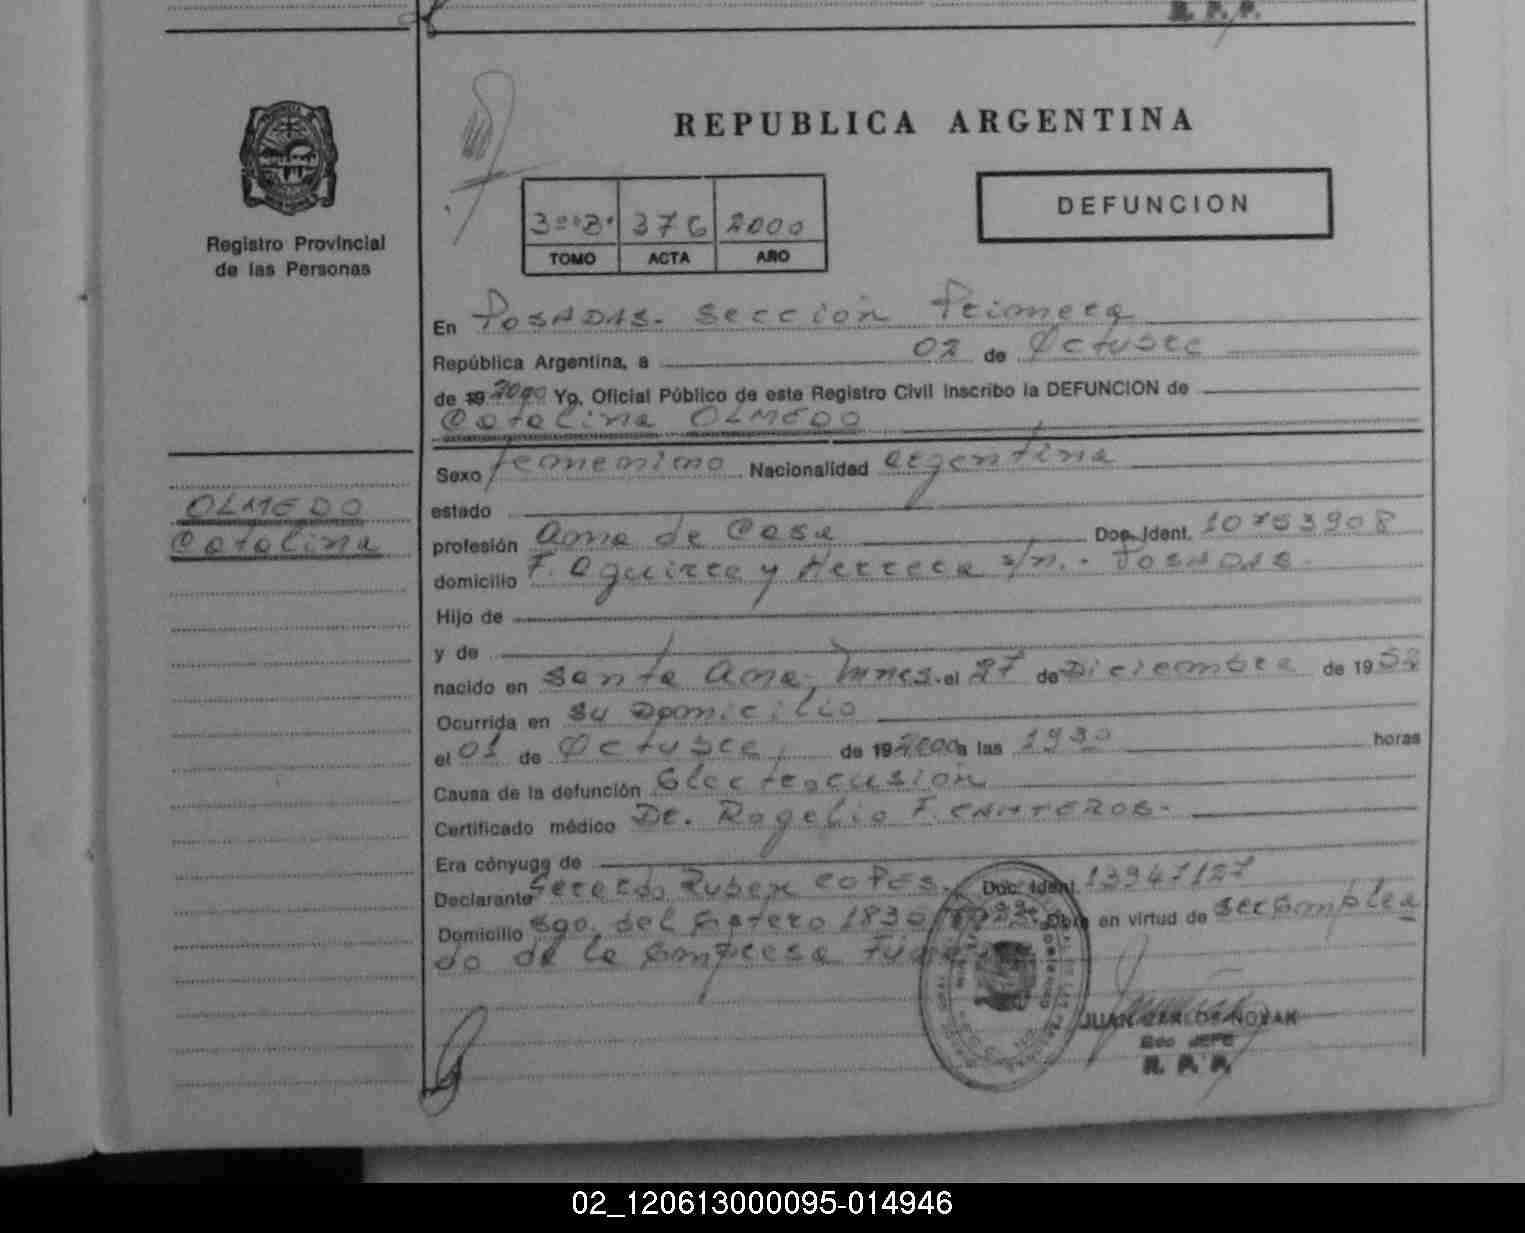 R. P. P.
REPUBLICA ARGENTINA
DEFUNCION
3º"B" 376 2000
TOMO ACTA AÑO
Registro Provincial
de las Personas
En POSADAS. Sección Primera
República Argentina, a 02 de Octubre
de 19 2000 Yo, Oficial Público de este Registro Civil inscribo la DEFUNCION de
Catalina OLMEDO
Sexo femenino Nacionalidad argentina
OLMEDO
Catalina
estado
profesión Ama de Casa Doc. Ident. 10753908
domicilio F. Aguirre y Herrera s/n.- POSADAS.
Hijo de
y de
nacido en Santa Ana, Mnes. el 27 de Diciembre de 19 52
Ocurrida en su Domicilio
el 01 de Octubre, de 19 2000 a las 1930 horas
Causa de la defunción Electrocusión
Certificado médico Dr. Rogelio F. CANTEROS.
Era cónyuge de
Declarante Gerardo Ruben Doc. Ident. 13947127
Domicilio Sgo. del Estero 1836 Obra en virtud de ser Emplea
do de la Empresa
JUAN CARLOS NOVAK
JEFE
R. P. P.
02_120613000095-014946